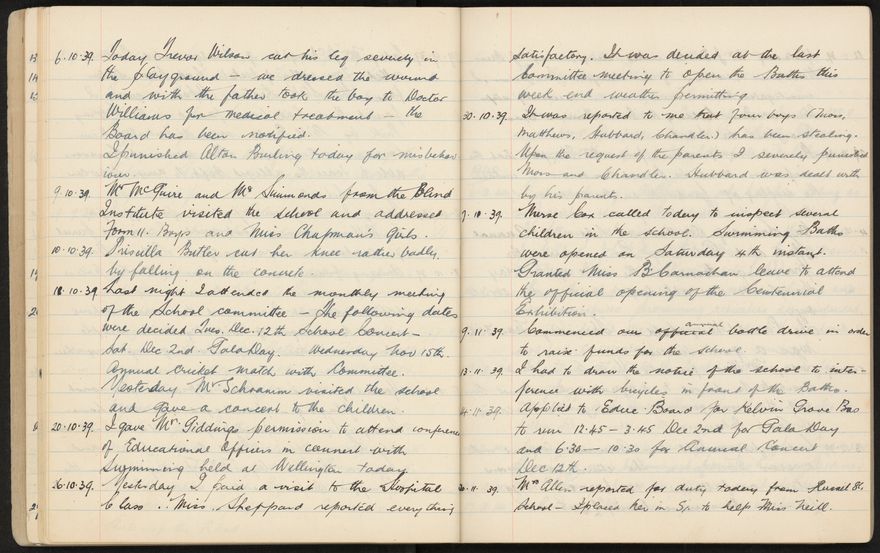 6.10.39. Today Trevor Wilson cut his leg severely in
the playground – we dressed the wound
and with the father took the boy to Doctor
Williams for medical treatment – the
Board has been notified.
I punished Alton Burling today for misbehav
iour.
9.10.39. Mr McGuire and Mr Simmonds from the Blind
Institute visited the school and addressed
Form II. Boys and Miss Chapman's Girls.
10.10.39. Priscilla Butler cut her knee rather badly
by falling on the concrete.
18.10.39 Last night I attended the monthly meeting
of the School committee – The following dates
were decided Tues. Dec. 12th School Concert –
Sat. Dec 2nd Gala Day. Wednesday Nov 15th.
Annual Cricket match with Committee.
Yesterday Mr Schramm visited the school
and gave a concert to the children.
20.10.39. I gave Mr. Giddings permission to attend conference
of Educational Officers in connect with
Swimming held at Wellington today.
26.10.39. Yesterday I paid a visit to the Hospital
Class. Miss. Sheppard reported everything
satisfactory. It was decided at the last
Committee meeting to open the Baths this
week end weather permitting
30.10.39. It was reported to me that four boys (Moss,
Matthews, Hubbard, Chandler.) has been stealing.
Upon the request of the parents I severely punished
Moss and Chandler. Hubbard was dealt with
by his parents.
39. Nurse Cox called today to inspect several
children in the school. Swimming Baths
were opened on Saturday 4th instant.
Granted Miss B. Carnachan leave to attend
the official opening of the Centennial
Exhibition.
9.11.39 Commenced our official annual bottle drive in order
to raise funds for the school.
13.11.39. I had to draw the notice of the school to inter-
ference with bicycles in front of the Baths.
14.11.39. Applied to Educ Board for Kelvin Grove Bus
to run 12.45 – 3.45 Dec 2nd for Gala Day
and 6.30 – 10.30 for Annual Concert
Dec 12th.
11.39. Mrs Allen reported for duty today from Russell St.
School – I placed her in S. to help Miss Neill.